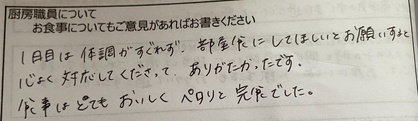 厨房職員について
お食事についてもご意見があればお書きください
1日目は体調がすぐれず、部屋食にしてほしいとお願いすると
心よく対応してくださって ありがたかったです。
食事はとても おいしく ペロリと 完食でした。